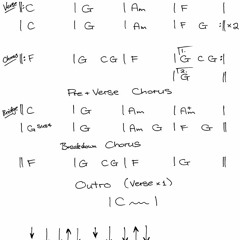 Verse ||: C | G | Am | F |
| C | G | Am | F G :|| x2
Chorus ||: F | G C G | F | 1. G C G :||
| 2. G ||
Pre + Verse Chorus
Bridge || C | G | Am | Am |
| | G | Am G | F G ||
Breakdown Chorus
|| F | G C G | F | G ||
Outro (Verse x1)
| C |